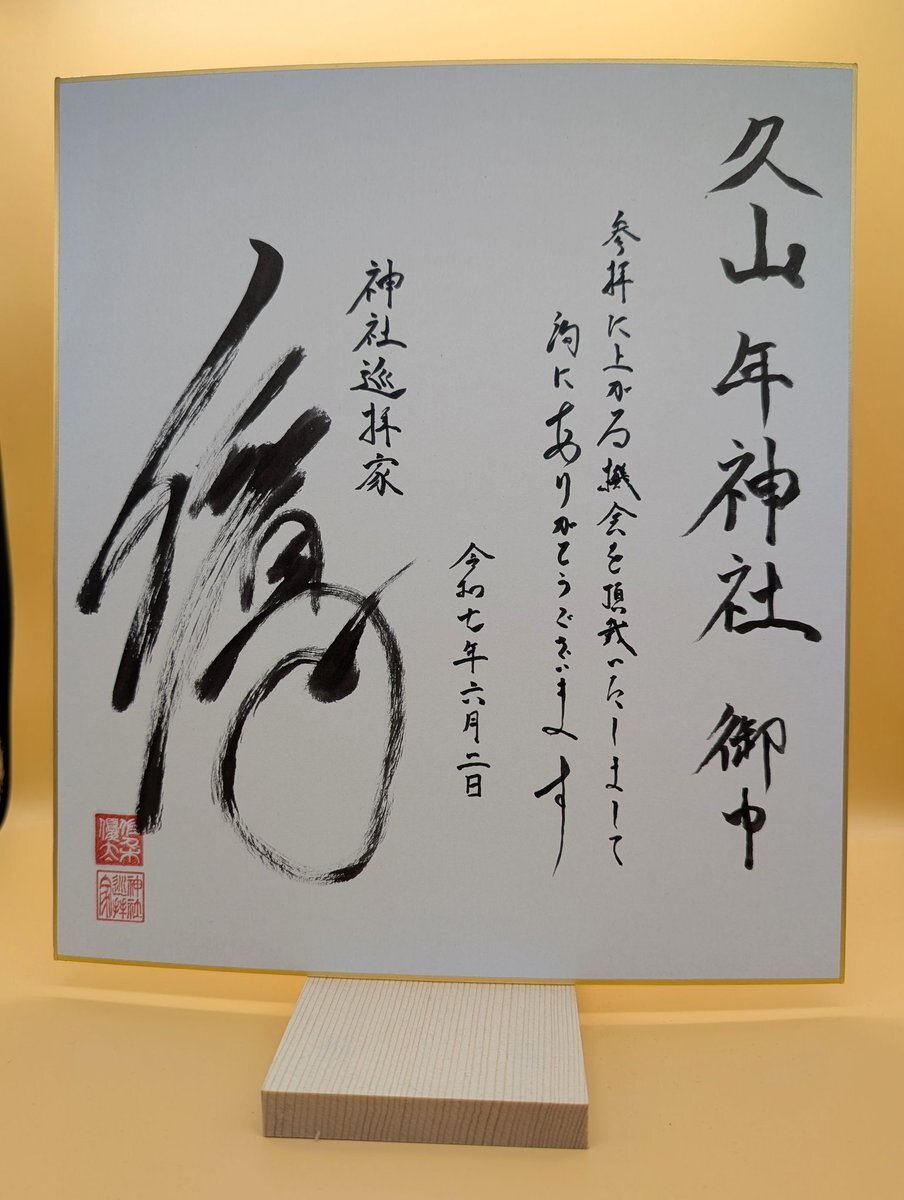 久山年神社 御中
参拝に上がる機会を頂戴いたしまして
洵にありがとうございます
令和七年六月二日
神社巡拝家
神社
巡拝